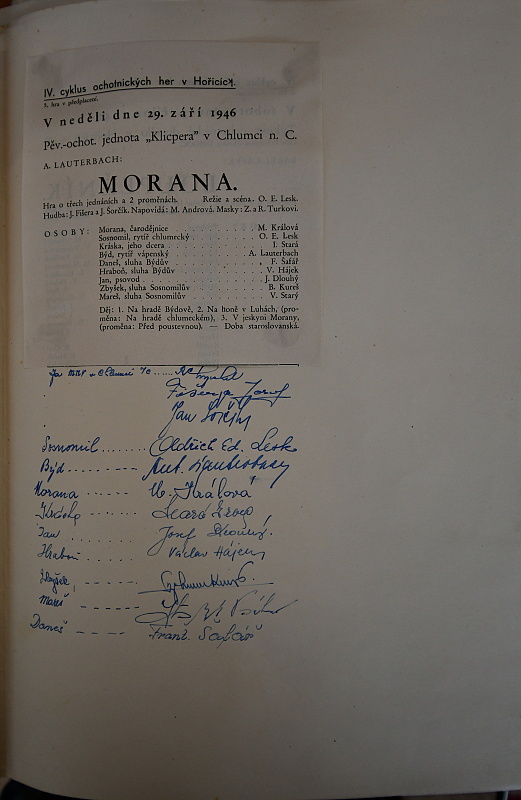 IV. cyklus ochotnických her v Hořicích.
3. hra v předplacení.
V neděli dne 29. září 1946
Pěv.-ochot. jednota „Klicpera" v Chlumci n. C.
A. LAUTERBACH:
MORANA.
Hra o třech jednáních a 2 proměnách. Režie a scéna: O. E. Lesk.
Hudba: J. Fišera a J. Šorčík. Napovídá: M. Andrová. Masky: Z. a R. Turkovi.
OSOBY: Morana, čarodějnice . . . . . M. Králová
Sosnomil, rytíř chlumecký . . . . . O. E. Lesk
Kráska, jeho dcera . . . . . I. Stará
Býd, rytíř vápenský . . . . . A. Lauterbach
Daneš, sluha Býdův . . . . . F. Šafář
Hraboň, sluha Býdův . . . . . V. Hájek
Jan, psovod . . . . . J. Dlouhý
Zbyšek, sluha Sosnomilův . . . . . B. Kureš
Mareš, sluha Sosnomilův . . . . . V. Starý
Děj: 1. Na hradě Býdově, 2. Na honě v Luhách, (pro-
měna: Na hradě chlumeckém), 3. V jeskyni Morany,
(proměna: Před poustevnou). — Doba staroslovanská.
Za v Chlumci
Fišera Josef
Jan Šorčík
Sosnomil ........ Oldřich Ed. Lesk
Býd ------- Ant. Lauterbach
Morana ...... M. Králová
Kráska ......
Jan ...... Josef Dlouhý
Hraboň ...... Václav Hájek
Zbyšek, -----
Mareš -----
Daneš ----- Frant. Šafář